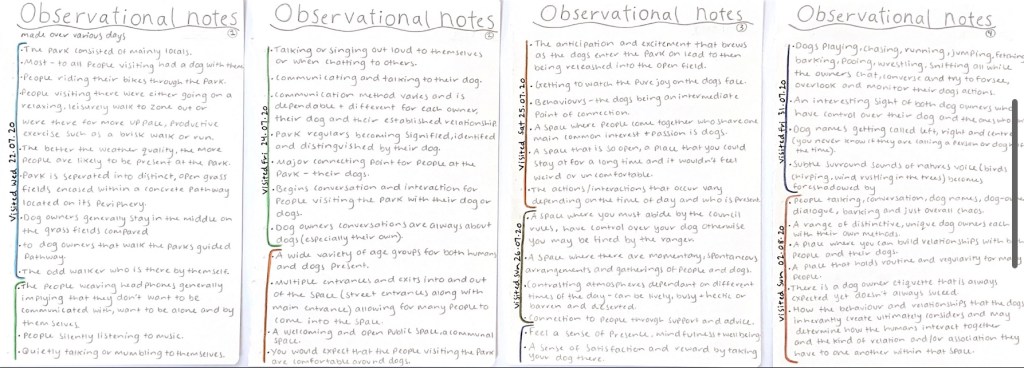 Observational notes
②
made over various days
Visited Wed 22.07.20
• The park consisted of mainly locals.
• Most - to all people visiting had a dog with them
• People riding their bikes through the park.
• People visiting there were either going on a
relaxing, leisurely walk to zone out or
were there for more up pace, productive
exercise such as a brisk walk or run.
• The better the weather quality, the more
people are likely to be present at the park.
• Park is seperated into distinct, open grass
fields encased within a concrete pathway
located on its periphery.
• Dog owners generally stay in the middle on
the grass fields compared
• to dog owners that walk the parks guided
pathway.
• The odd walker who is there by themself.
• The people wearing headphones generally
implying that they don't want to be
communicated with, want to be alone and by
themselves.
• People silently listening to music.
• Quietly talking or mumbling to themselves.
Observational notes
Visited Fri 24.07.20
• Talking or singing out loud to themselves
or when chatting to others.
• Communicating and talking to their dog.
• Communication method varies and is
dependable + different for each owner,
their dog and their established relationship.
• Park regulars becoming signified, identified
and distinguished by their dog.
• Major connecting point for people at the
park - their dogs.
• Begins conversation and interaction for
people visiting the park with their dog or
dogs.
• Dog owners conversations are always about
dogs (especially their own).
• A wide variety of age groups for both humans
and dogs present.
• Multiple entrances and exits into and out
of the space (street entrances along with
main entrance) allowing for many people to
come into the space.
• A welcoming and open public space, a communal
space.
• You would expect that the people visiting the park
are comfortable around dogs.
Observational notes
③
Visited Sat 25.07.20
• The anticipation and excitement that brews
as the dogs enter the park on lead to then
being released into the open field.
• Getting to watch the pure joy on the dogs face.
• Behaviours - the dogs being an intermediate
point of connection.
• A space where people come together who share one
main common interest + passion is dogs.
• A space that is so open, a place that you could
stay at for a long time and it wouldn't feel
weird or uncomfortable.
• The actions/interactions that occur vary
depending on the time of day and who is present.
Visited Sun 26.07.20
• A space where you must abide by the council
rules, have control over your dog otherwise
you may be fined by the ranger.
• A space where there are momentary, spontaneous
arrangements and gatherings of people and dogs.
• Contrasting atmospheres dependant on different
times of the day - can be lively, busy + hectic or
barren and deserted.
• Connection to people through support and advice.
• Feel a sense of presence, mindfulness + wellbeing
• A sense of satisfaction and reward by taking
your dog there.
Observational notes
④
Visited Fri 31.07.20
• Dogs playing, chasing, running, jumping, fetching,
barking, pooing, wrestling, sniffing all while
the owners chat, converse and try to forsee,
overlook and monitor their dogs actions.
• An interesting sight of both dog owners who
have control over their dog and the ones who
• Dog names getting called left, right and centre
(you never know if they are calling a person or dog
the time).
• Subtle surround sounds of natures voice (birds
chirping, wind rustling in the trees) becomes
foreshadowed by
Visited Sun 02.08.20
• People talking, conversation, dog names, dog-owner
dialogue, barking and just overall chaos.
• A range of distinctive, unique dog owners each
with their own methods.
• A place where you can build relationships with
people and their dogs.
• A place that holds routine and regularity for many
people.
• There is a dog owner etiquette that is always
expected yet doesn't always succeed.
• How the behaviour and relationships that the dogs
inherantly create ultimately considers and may
determine how the humans interact together
and the kind of relation and/or association they
have to one another within that space.